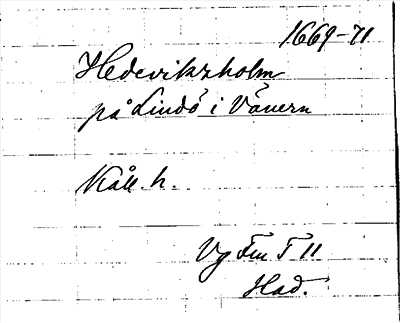 1669-71
Hedeviksholm
på Lindö i Vänern
Kåll. h.
Vg Fm T 11
Had.